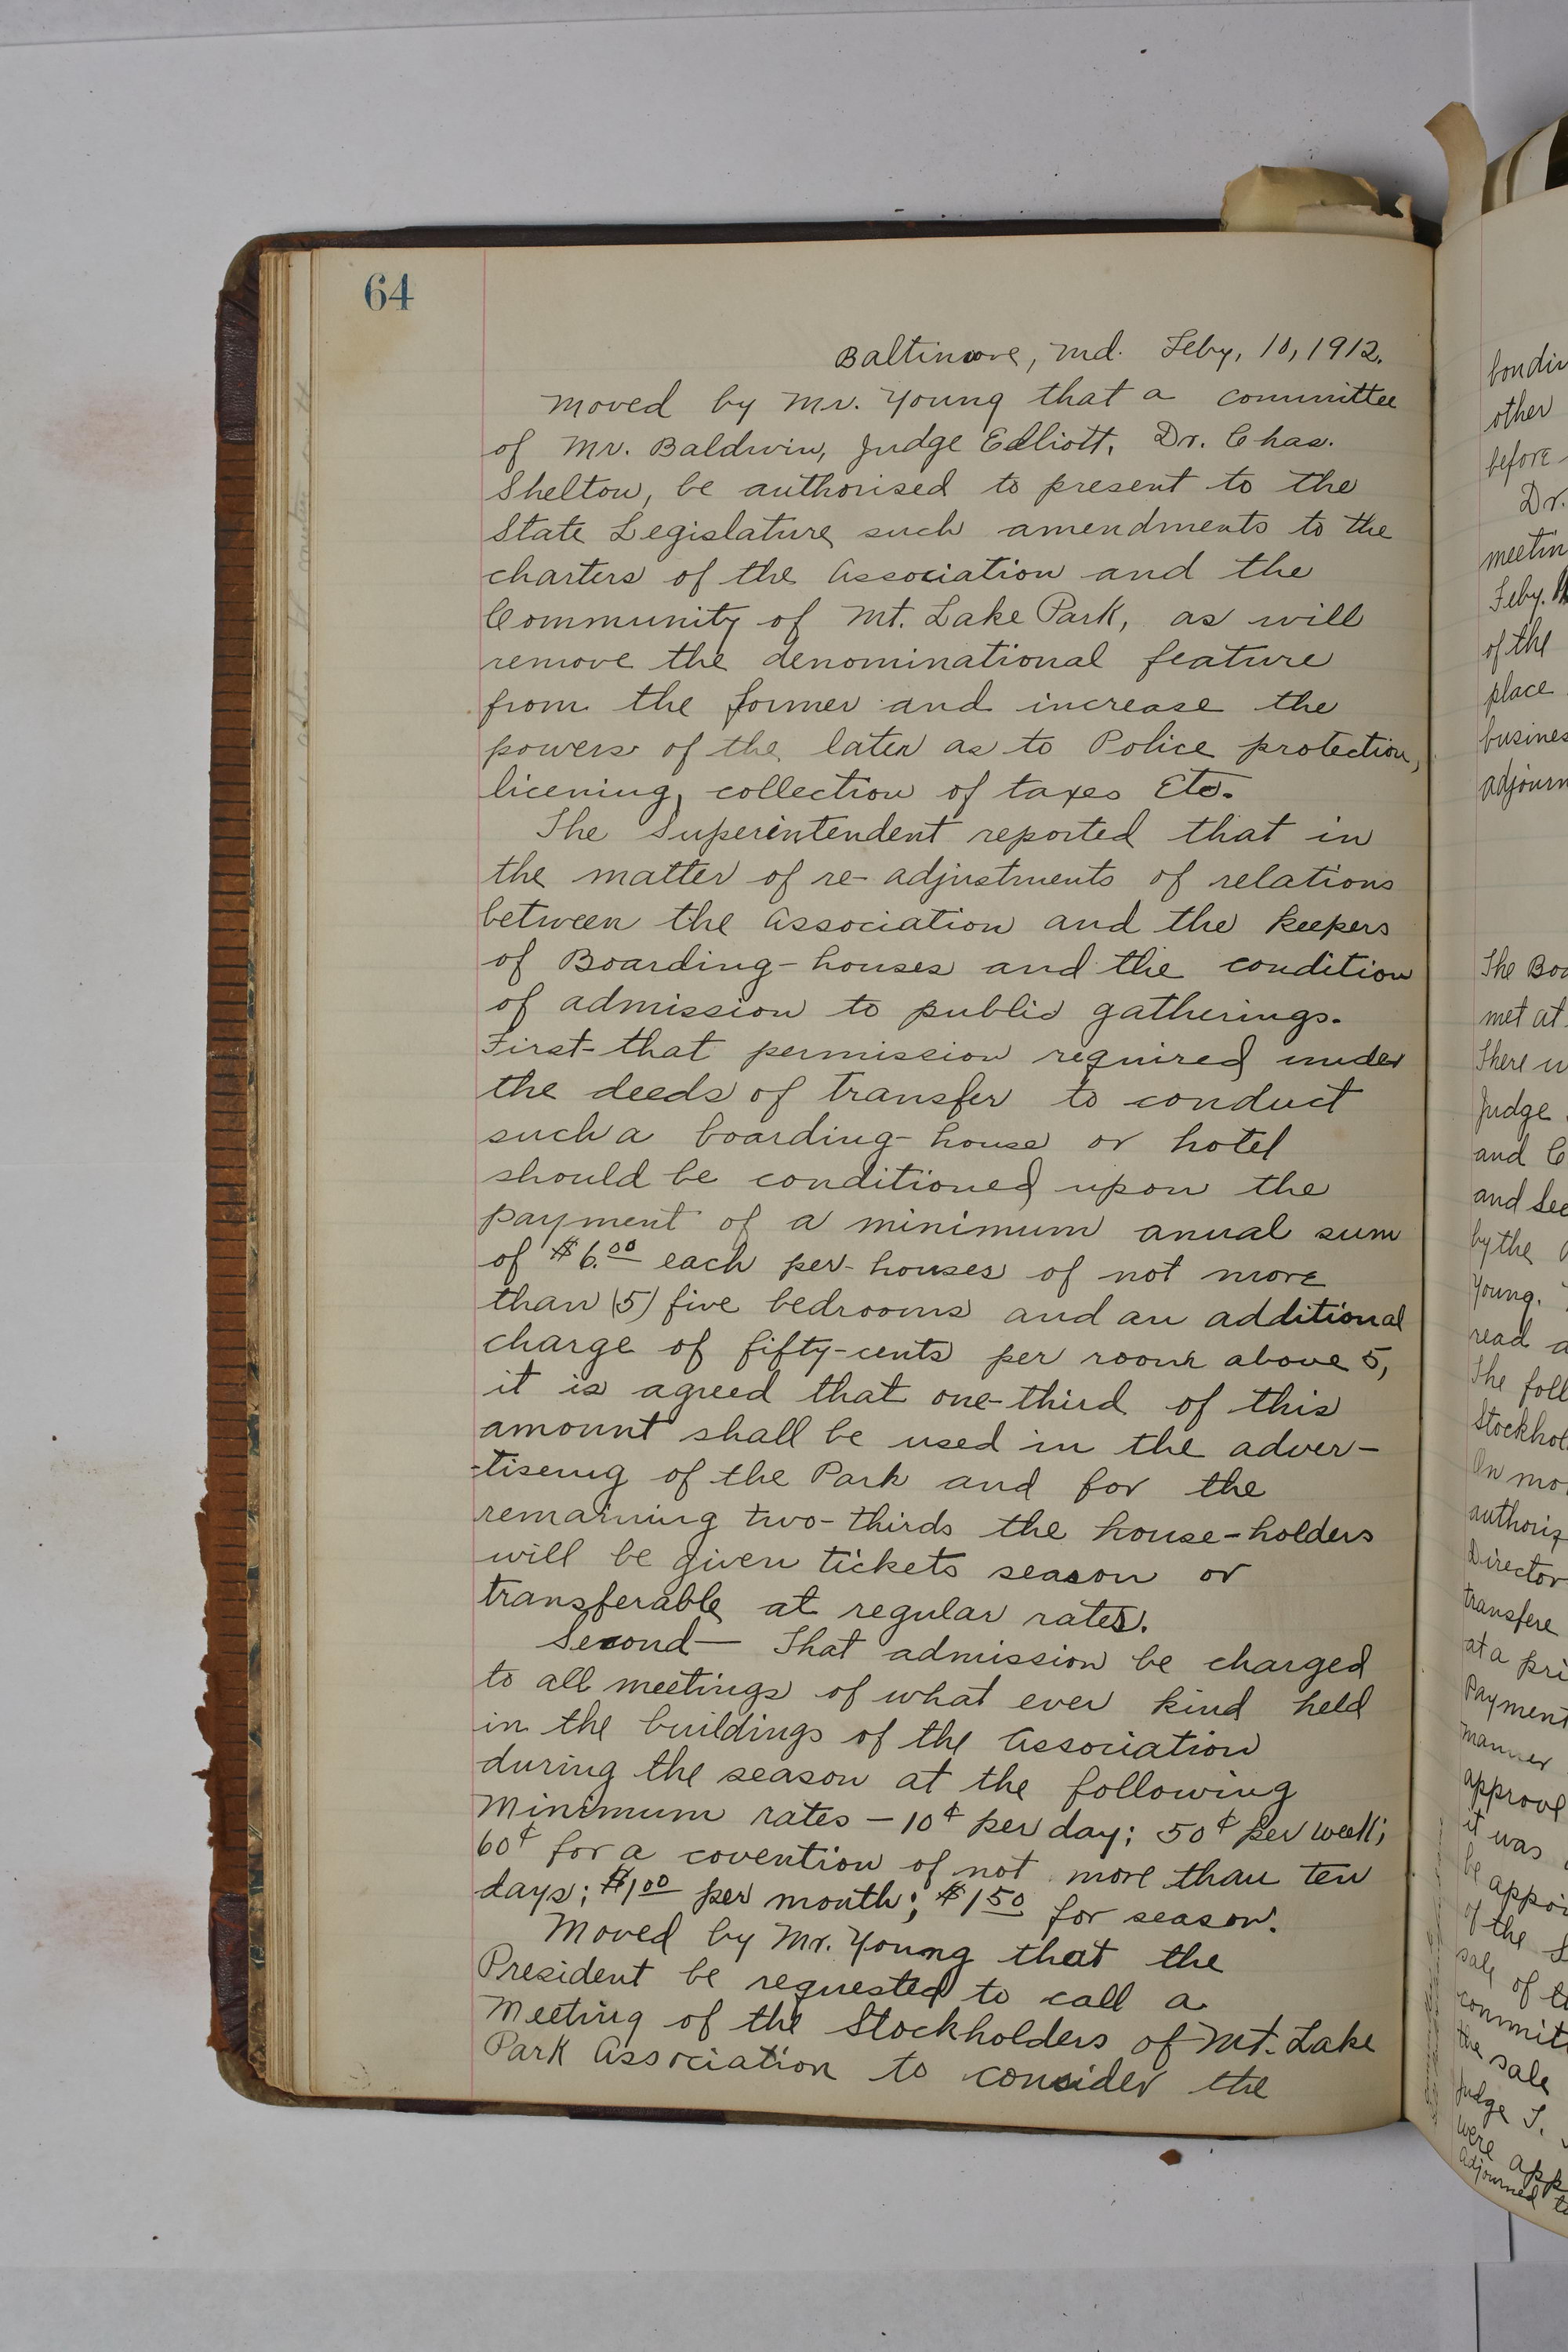 64
Baltimore, Md. Feby, 10, 1912.
Moved by Mr. Young that a committee
of Mr. Baldwin, Judge Elliott, Dr. Chas.
Shelton, be authorised to present to the
State Legislature such amendments to the
charters of the Association and the
Community of Mt. Lake Park, as will
remove the denominational feature
from the former and increase the
powers of the later as to Police protection,
licening, collection of taxes Etc.
The Superintendent reported that in
the matter of re-adjustments of relations
between the Association and the keepers
of Boarding-houses and the condition
of admission to public gatherings.
First-that permission required under
the deeds of transfer to conduct
such a boarding-house or hotel
should be conditioned upon the
payment of a minimum anual sum
of $6.00 each per-houses of not more
than (5) five bedrooms and an additional
charge of fifty-cents per room above 5,
it is agreed that one-third of this
amount shall be used in the adver-
-tiseing of the Park and for the
remaining two-thirds the house-holders
will be given tickets season or
transferable at regular rates.
Second— That admission be charged
to all meetings of what ever kind held
in the buildings of the Association
during the season at the following
Minimum rates — 10¢ per day; 50¢ per week;
60¢ for a covention of not more than ten
days; $1.00 per month; $1 50 for season.
Moved by Mr. Young that the
President be requested to call a
Meeting of the Stockholders of Mt. Lake
Park Association to consider the
other
before
Dr.
Feby.
of the
place
The
met at
Judge
and
by the
Young.
read
The
authoriz
Director
transfere
at a
Payment
manner
it was
be
of the
sale of
the sale
Judge
were
Adjourned